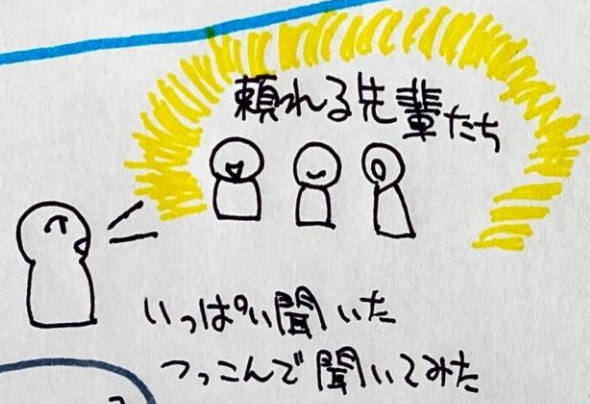 頼れる先輩たち
いっぱい聞いた
つっこんで聞いてみた